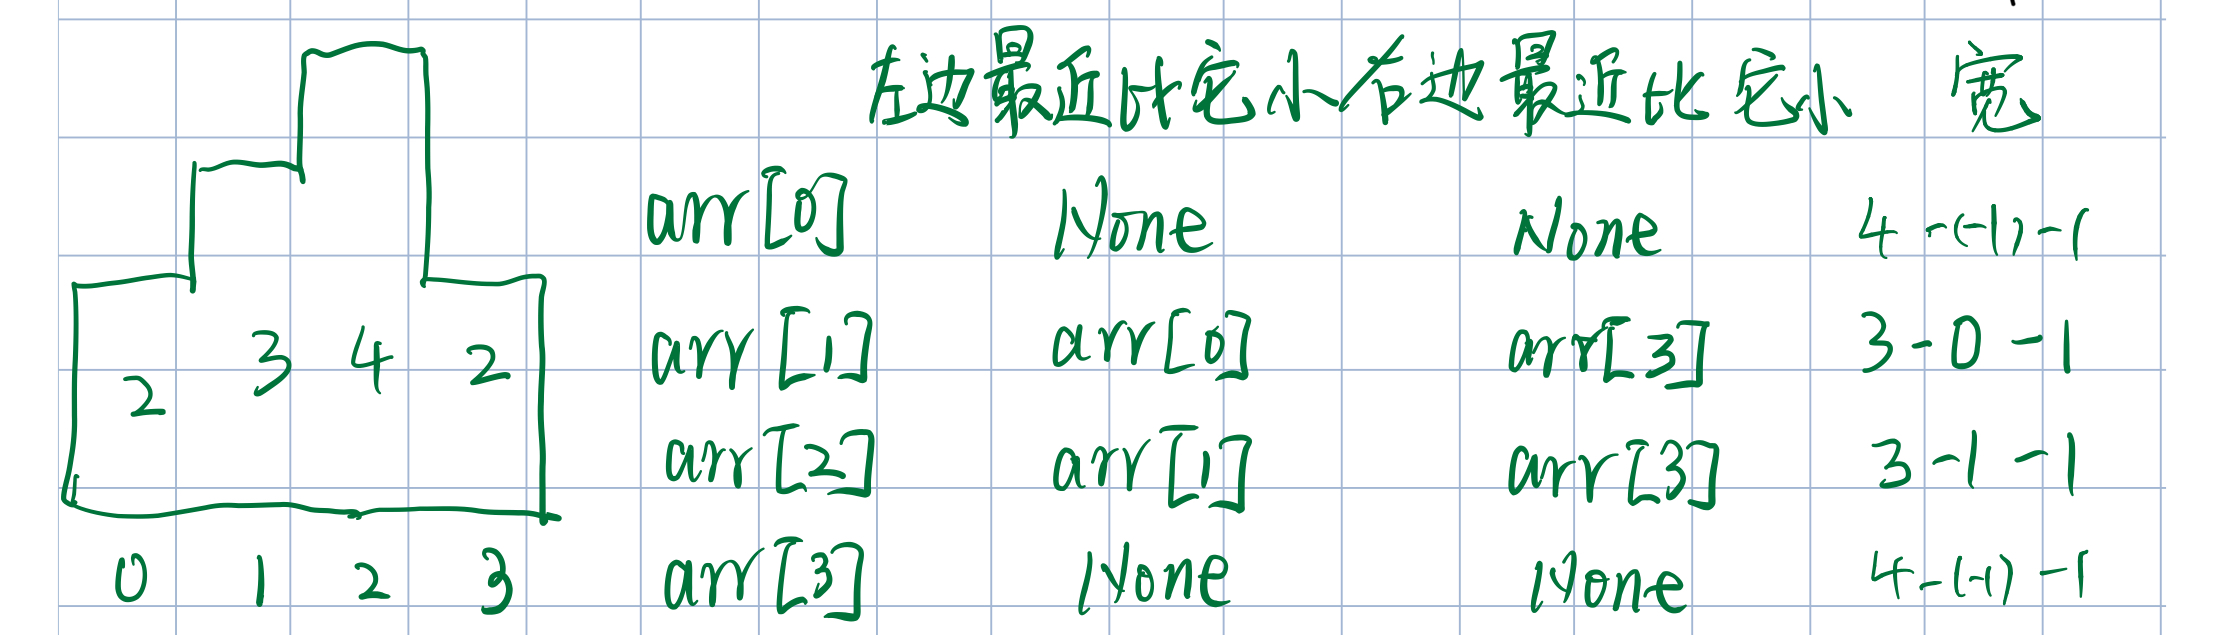 左边最近比它小/右边最近比它小 宽
arr[0] None None 4-(-1)-1
2 3 4 2 arr[1] arr[0] arr[3] 3-0-1
arr[2] arr[1] arr[3] 3-1-1
0 1 2 3 arr[3] None None 4-(-1)-1